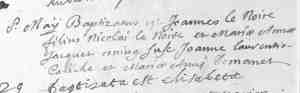 Maÿ Baptizatus est Joannes le Noire
filius Nicolai le Noire et Mariæ Annæ
Jacques coniug Susc Joanne laurentio
et Maria
29 baptizata est elisabeth